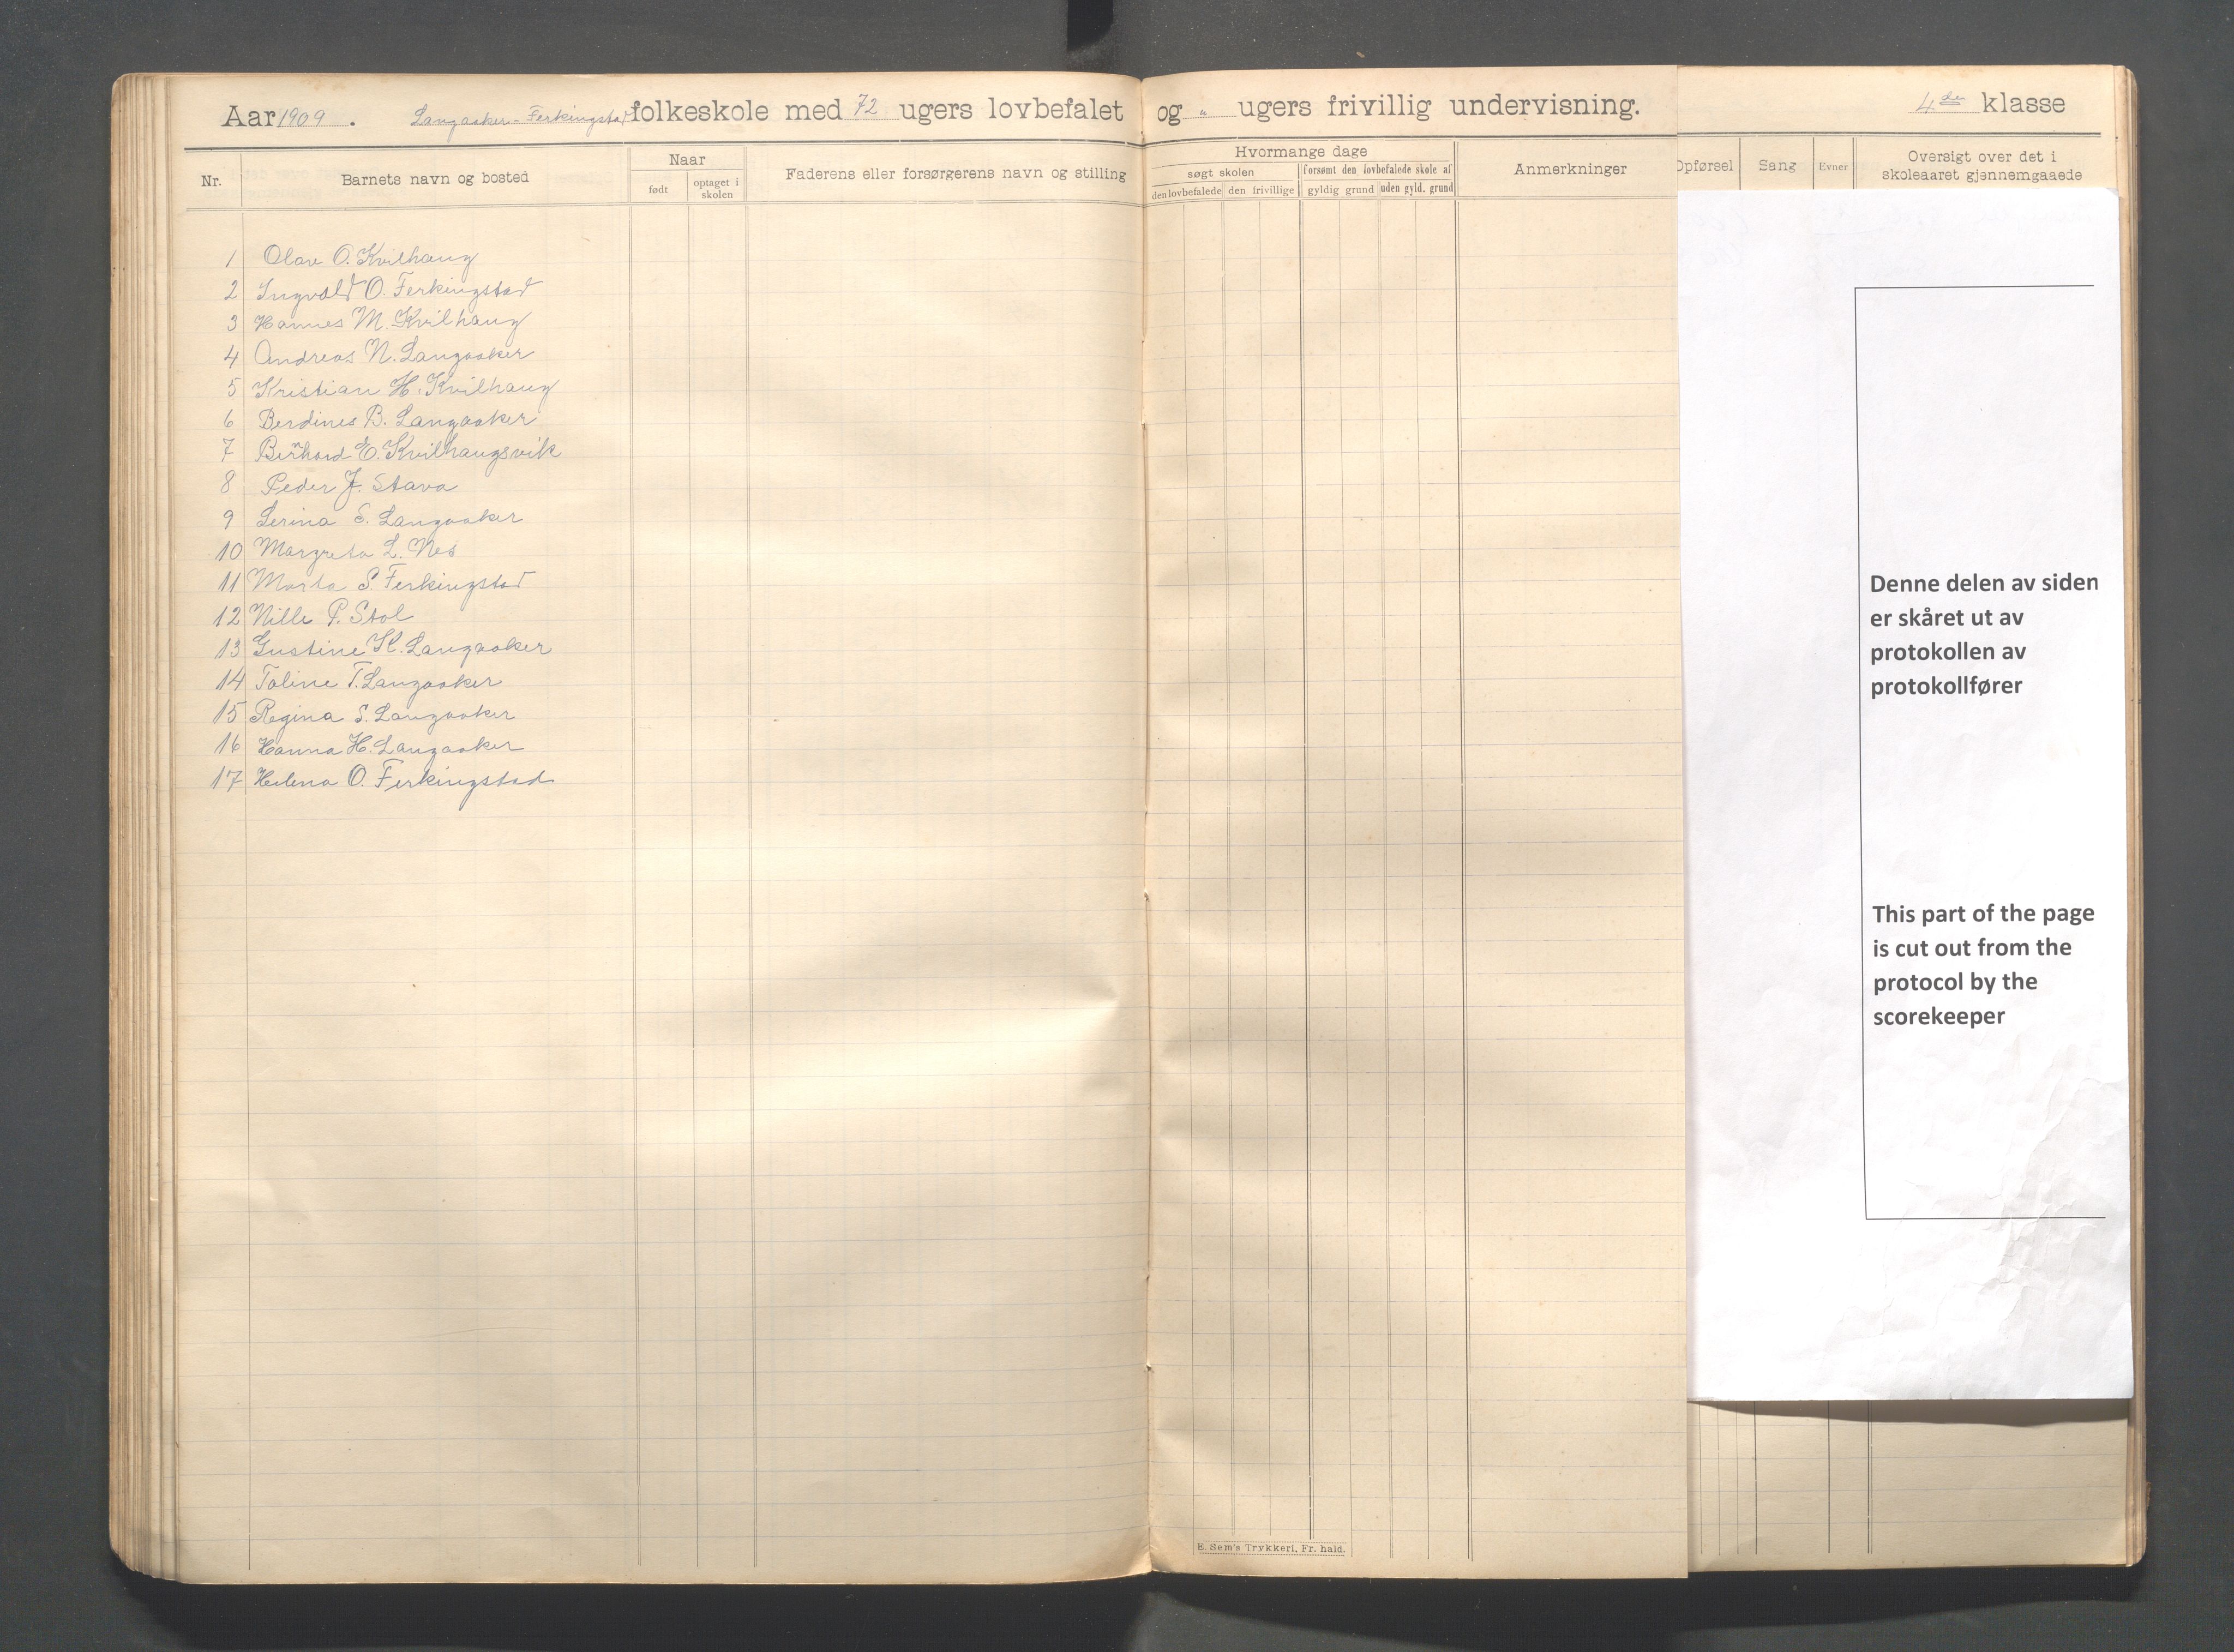 Aar 1909. Langaaker-Ferkingstad folkeskole med 72 ugers lovbefalet og " ugers frivillig undervisning. 4de klasse
Nr. Barnets navn og bosted Naar født optaget i skolen Faderens eller forsørgerens navn og stilling
Hvormange dage
søgt skolen forsømt den lovbefalede skole af
den lovbefalede den frivillige gyldig grund uden gyld. grund
Anmerkninger
Opførsel Sang Evner Oversigt over det i
skoleaaret gjennemgaaede
1 Olav O. Kvilhaug
2 Ingvald O. Ferkingstad
3 Hannes M. Kvilhaug
4 Andreas N. Langaaker
5 Kristian H. Kvilhaug
6 Berdines B. Langaaker
7 Bernhard E. Kvilhaugsvik
8 Peder J. Stava
9 Serina S. Langaaker
10 Margreta L. Nes
11 Marta S. Ferkingstad
12 Nille P. Stol
13 Gustine K. Langaaker
14 Taline T. Langaaker
15 Regina S. Langaaker
16 Hanna H. Langaaker
17 Helena O. Ferkingstad
Denne delen av siden
er skåret ut av
protokollen av
protokollfører
This part of the page
is cut out from the
protocol by the
scorekeeper
E. Sem's Trykkeri, Fr. hald.